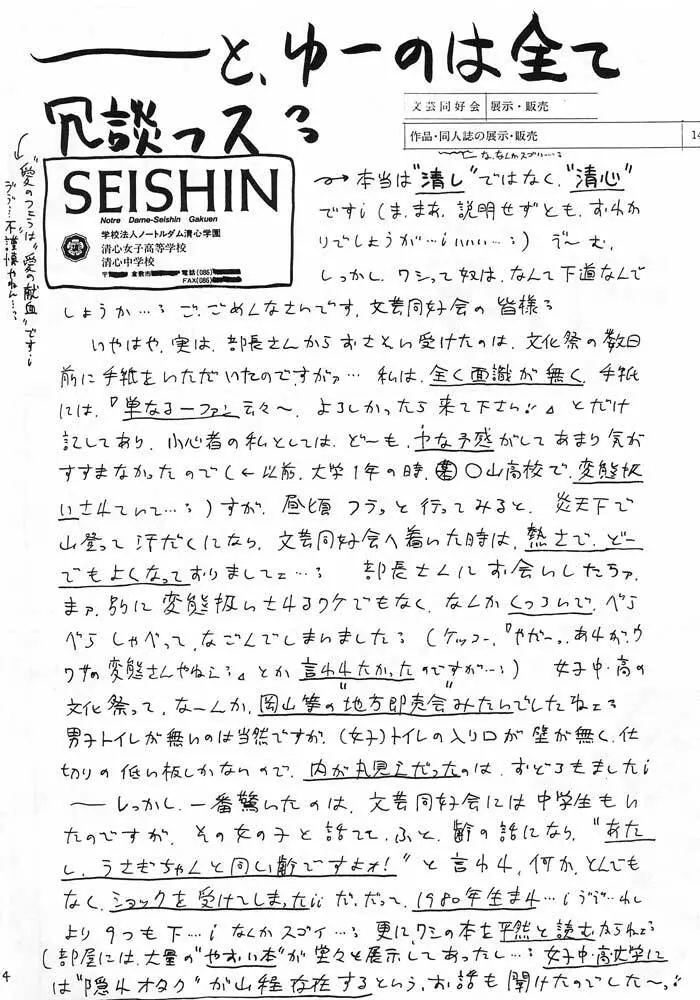 ——と、ゆーのは全て
冗談っス
文芸同好会 展示・販売
作品・同人誌の展示・販売 14
な、なんかスゴい…
"愛のつどい"は"愛の献血"です
SEISHIN
Notre Dame-Seishin Gakuen
学校法人ノートルダム清心学園
清心女子高等学校
清心中学校
〒 倉敷市 電話(086)
FAX(086)
本当は"清し"ではなく、"清心"
です！(ま、まぁ、説明せずとも、おわか
りでしょうが…！いいい…)う〜む、
しっかし、ワシって奴は、なんて下道なんで
しょうか…ご、ごめんなさいです、文芸同好会の皆様
いやはや、実は、部長さんからおさそい受けたのは、文化祭の数日
前に手紙をいただいたのですがァ…私は、全く面識が無く、手紙
には、『単なる一ファン云々〜、よろしかったら来て下さい』とだけ
記してあり、小心者の私としては、ど〜も、ヤな予感がしてあまり気が
すすまなかったので(←以前、大学1年の時、〇山高校で、変態扱
いされていて…)すが、昼頃フラっと行ってみると、炎天下で
山登って汗だくになり、文芸同好会へ着いた時は、熱さで、どー
でもよくなっておりましてェ… 部長さんにお会いしたらァ、
まァ、別に変態扱いされるワケでもなく、なんかくつろいで、べら
べらしゃべって、なごんでしまいました(ケッコー、『やだーっ、あれが、ウ
ワサの変態さんやねえ』とか言われたかったのですが…) 女子中・高の
文化祭って、なーんか、岡山等の"地方即売会"みたいでしたねェ
男子トイレが無いのは当然ですが、(女子)トイレの入り口が壁が無く、仕
切りの低い板しかないので、内が丸見えだったのは、おどろきました！
——しっかし、一番驚いたのは、文芸同好会には中学生もい
たのですが、その女の子と話してて、ふと、齢の話になり、"あた
し、うさぎちゃんと同じ齢ですよォ！"と言われ、何か、とんでも
なく、ショックを受けてしまった！！だ、だって、1980年生まれ…！ わし
より9つも下…！なんかスゴイ… 更に、ワシの本を平然と読むかられェ
(部屋には、大量の"やおい本"が堂々と展示してあったし… 女子中・高・大学に
は"隠れオタク"が山程存在するという、お話も聞けたのでした〜っ
4